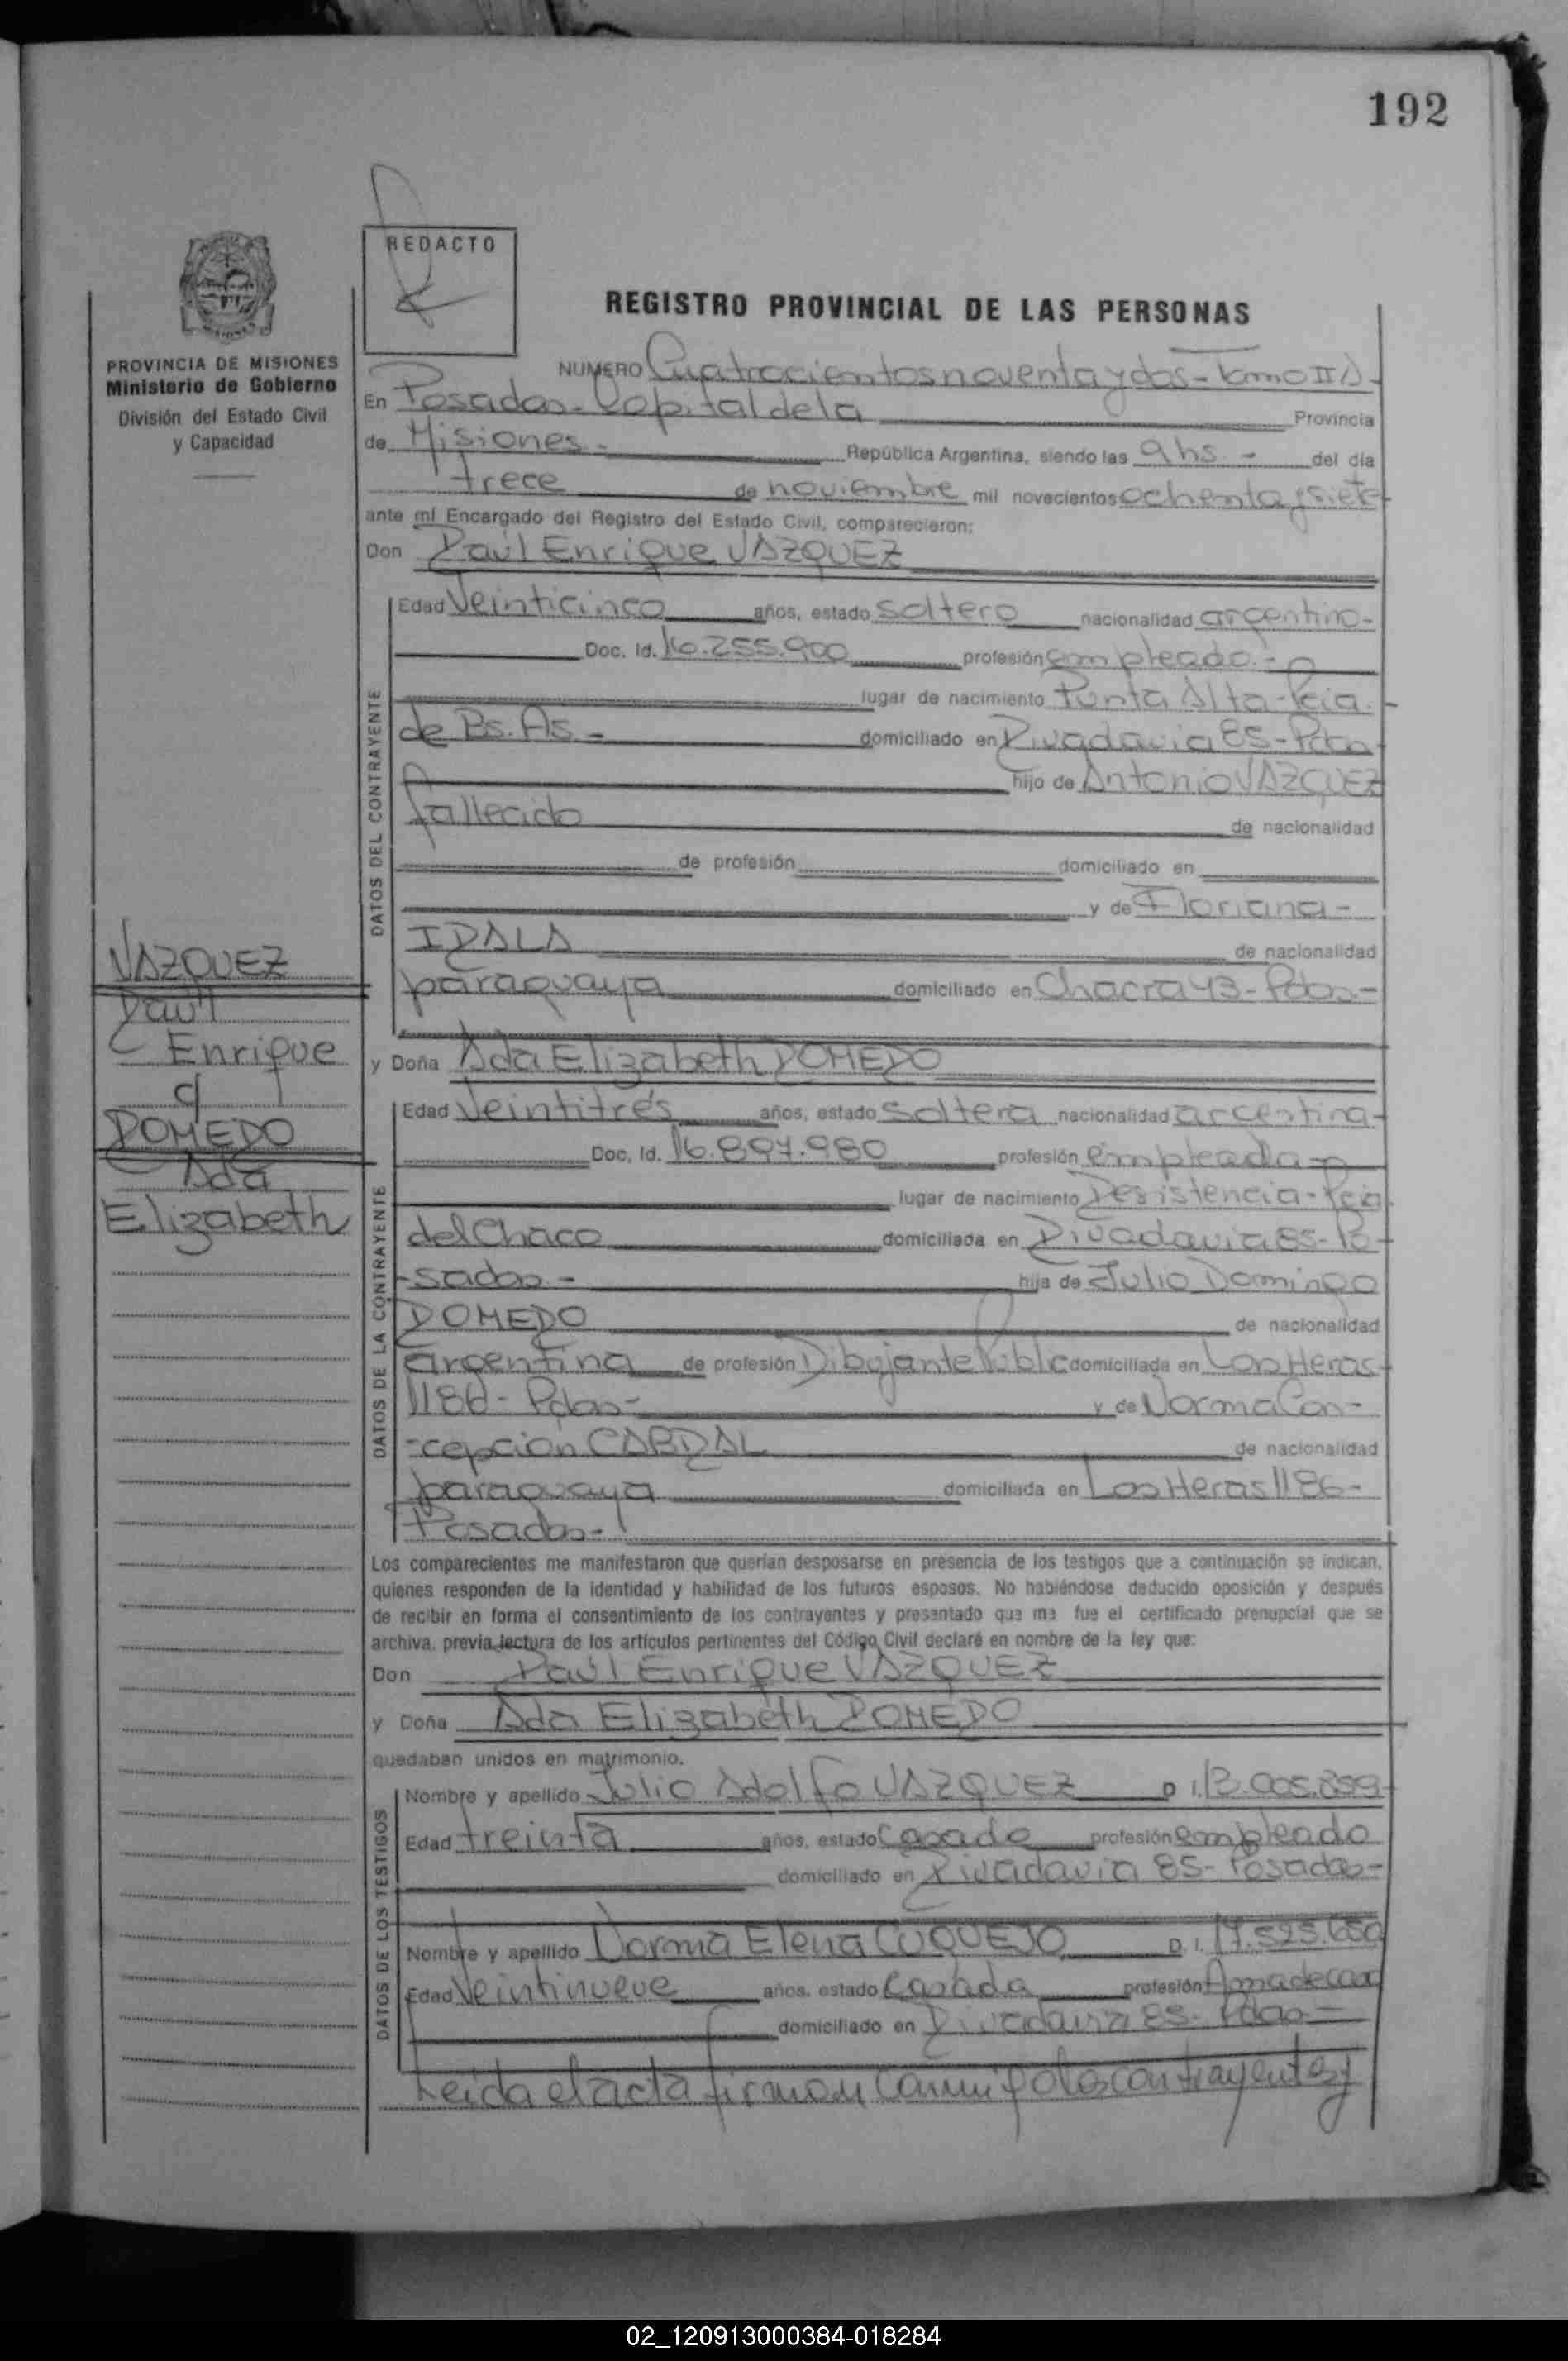 192
REDACTO
REGISTRO PROVINCIAL DE LAS PERSONAS
PROVINCIA DE MISIONES
Ministerio de Gobierno
División del Estado Civil
y Capacidad
NUMERO Cuatrocientos noventa y dos - Tomo II
En Posadas - Capital de la Provincia
de Misiones - República Argentina, siendo las 9 hs - del día
trece de noviembre mil novecientos ochenta y siete
ante mí Encargado del Registro del Estado Civil, comparecieron:
Don Raúl Enrique VAZQUEZ
Edad Veinticinco años, estado soltero nacionalidad argentino -
Doc. Id. 16.255.900 profesión empleado -
lugar de nacimiento Punta Alta - Pcia
de Bs. As - domiciliado en Rivadavia 85 - Pdas
hijo de Antonio VAZQUEZ
fallecido de nacionalidad
de profesión domiciliado en
y de Floriana -
IRALA de nacionalidad
paraguaya domiciliado en Chacra 43 - Pdas -
y Doña Ada Elizabeth ROMERO
Edad Veintitrés años, estado soltera nacionalidad argentina -
Doc. Id. 16.897.980 profesión empleada -
lugar de nacimiento Resistencia - Pcia
del Chaco domiciliada en Rivadavia 85 - Po -
- sadas - hija de Julio Domingo
ROMERO de nacionalidad
argentina de profesión Dibujante Public domiciliada en Las Heras
1186 - Pdas - y de Norma Con -
- cepción CABRAL de nacionalidad
paraguaya domiciliada en Las Heras 1186 -
Posadas -
VAZQUEZ
Raúl
Enrique
c/
ROMERO
Ada
Elizabeth
DATOS DEL CONTRAYENTE
DATOS DE LA CONTRAYENTE
Los comparecientes me manifestaron que querían desposarse en presencia de los testigos que a continuación se indican,
quienes responden de la identidad y habilidad de los futuros esposos. No habiéndose deducido oposición y después
de recibir en forma el consentimiento de los contrayentes y presentado que me fue el certificado prenupcial que se
archiva, previa lectura de los artículos pertinentes del Código Civil declaré en nombre de la ley que:
Don Raúl Enrique VAZQUEZ
y Doña Ada Elizabeth ROMERO
quedaban unidos en matrimonio.
DATOS DE LOS TESTIGOS
Nombre y apellido Julio Adolfo VAZQUEZ D.I.
Edad treinta años, estado Casado profesión empleado
domiciliado en Rivadavia 85 - Posadas -
Nombre y apellido Norma Elena COQUEJO D.I.
Edad Veintinueve años, estado Casada profesión
domiciliado en Rivadavia 85 - Pdas -
Leida el acta firman conmigo los contrayentes y
02_120913000384-018284